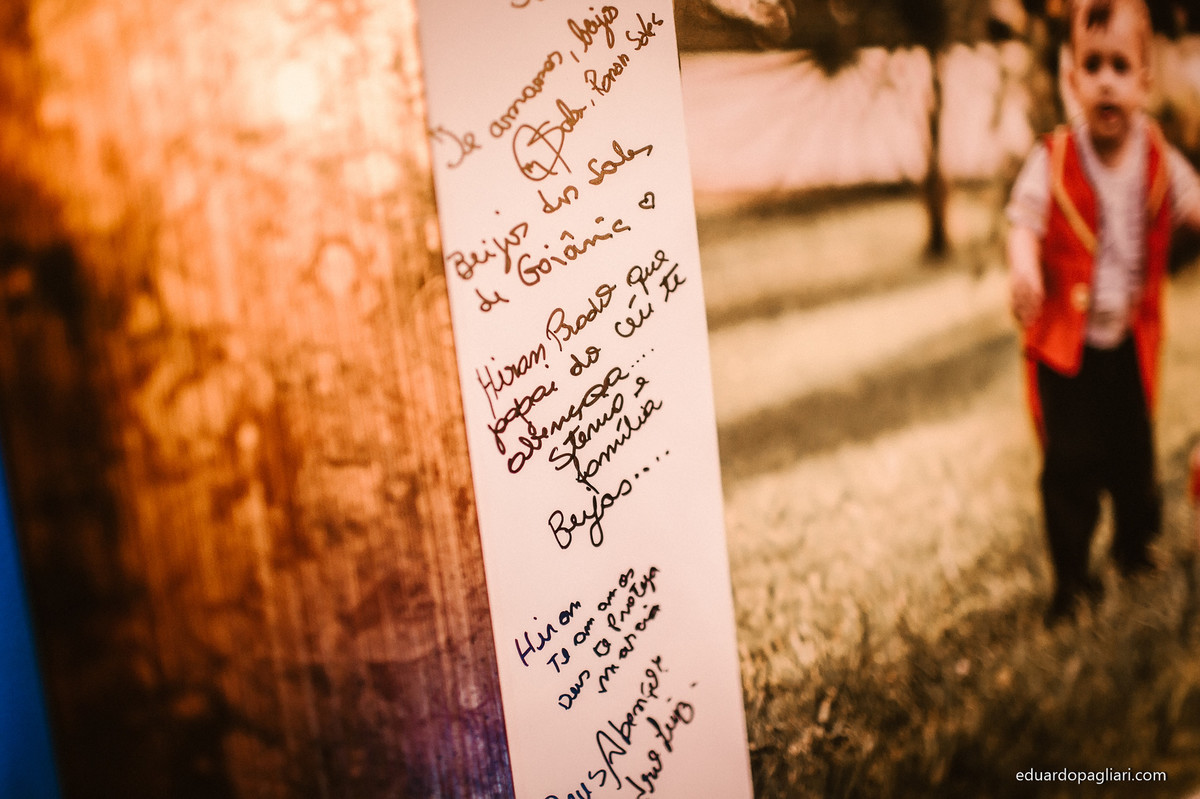 Te amamos, beijo
Beijos dos Sales
de Goiânia ♡
Hiran Prado que
papai do céu te
abençoa....
e
família
Beijos....
Hiran
Te amamos
Deus te Proteja
marcia
Deus Abençoe
Jose Luiz.
eduardopagliari.com